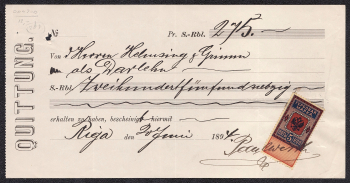 QUITTUNG.
№ Pr. S.-Rbl. 275.
Von d' Herren Helmsing & Grimm
als Darlehn
S.-Rbl. Zweihundertfünfundsiebzig
erhalten zu haben, bescheinigt hiermit
Riga Juni 1894